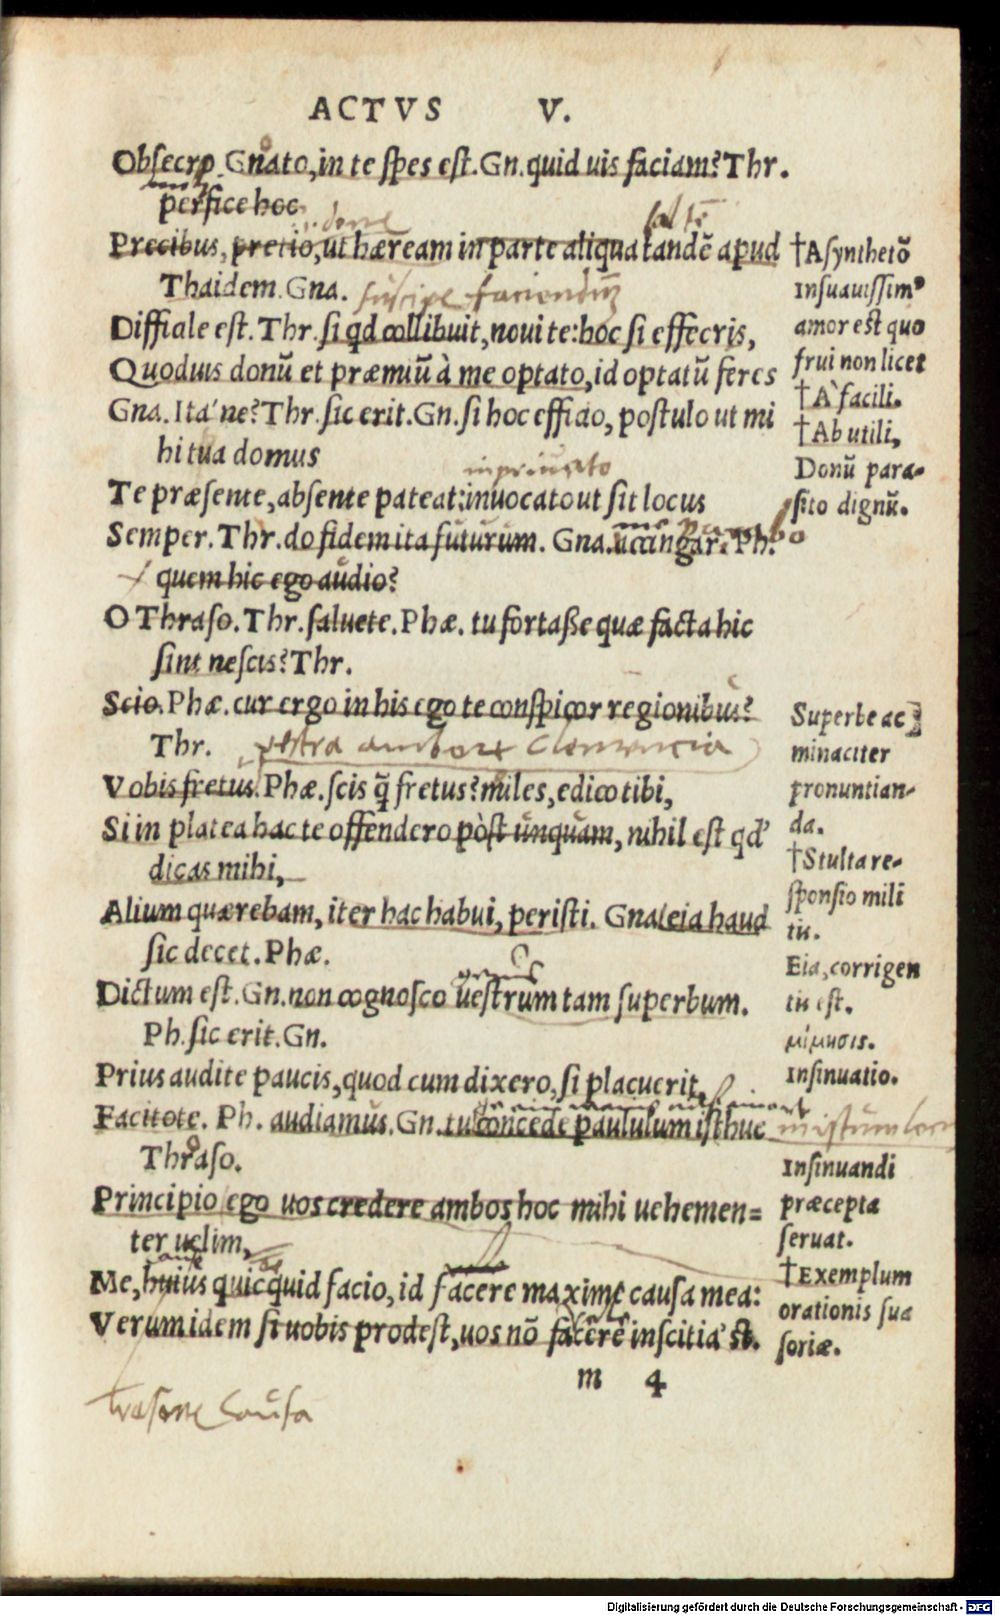 ACTVS V.
Obsecro Gnato, in te spes est. Gn. quid uis faciam? Thr.
perfice hoc
Precibus, pretio, ut hæream in parte aliqua tandē apud
Thaidem. Gna. suscipe faciendū
Difficile est. Thr. si qd collibuit, noui te: hoc si effecris,
Quoduis donū et præmiū à me optato, id optatū feres
Gna. Ita'ne? Thr. sic erit. Gn. si hoc efficio, postulo ut mi
hi tua domus
Te præsente, absente pateat: inuocato ut sit locus
Semper. Thr. do fidem ita futurum. Gna. accingar. Ph.
quem hic ego audio?
O Thraso. Thr. saluete. Phæ. tu fortaße quæ facta hic
sint nescis? Thr.
Scio. Phæ. cur ergo in his ego te conspicor regionibus?
Thr. clemencia
Vobis fretus. Phæ. scis q̃ fretus? miles, edico tibi,
Si in platea hac te offendero pòst unquam, nihil est qd'
dicas mihi,
Alium quærebam, iter hac habui, peristi. Gna. eia haud
sic decet. Phæ.
Dictum est. Gn. non cognosco uestrum tam superbum.
Ph. sic erit. Gn.
Prius audite paucis, quod cum dixero, si placuerit,
Facitote. Ph. audiamus. Gn. tu concede paululum isthuc
Thraso.
Principio ego uos credere ambos hoc mihi uehemen=
ter uelim,
Me, huius quicquid facio, id facere maxime causa mea:
Verum idem si uobis prodest, uos nō facere inscitia'st.
m 4
causa
†Asynthetō
Insuauissim⁹
amor est quo
frui non licet
†A' facili.
†Ab utili,
Donū para-
sito dignū.
Superbe ac
minaciter
pronuntian-
da.
†Stulta re-
sponsio mili
tis.
Eia, corrigen
tis est.
μίμησις.
Insinuatio.
Insinuandi
præcepta
seruat.
†Exemplum
orationis sua
soriæ.
Digitalisierung gefördert durch die Deutsche Forschungsgemeinschaft - DFG